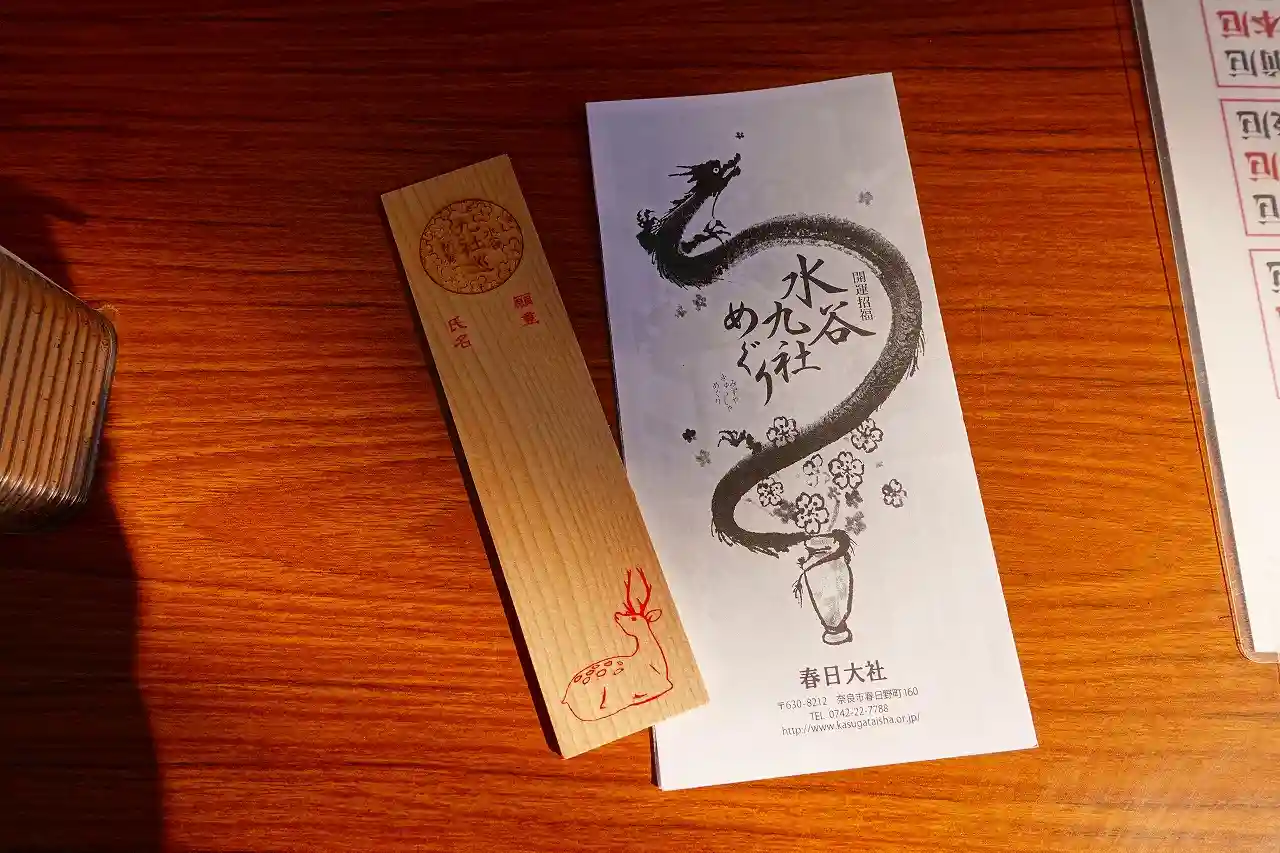 願意
氏名
開運招福
水谷
九社
めぐり
みずや
きゅうしゃ
めぐり
春日大社
〒630-8212　奈良市春日野町160
TEL 0742-22-7788
http://www.kasugataisha.or.jp/
本厄
前厄
厄
厄
厄